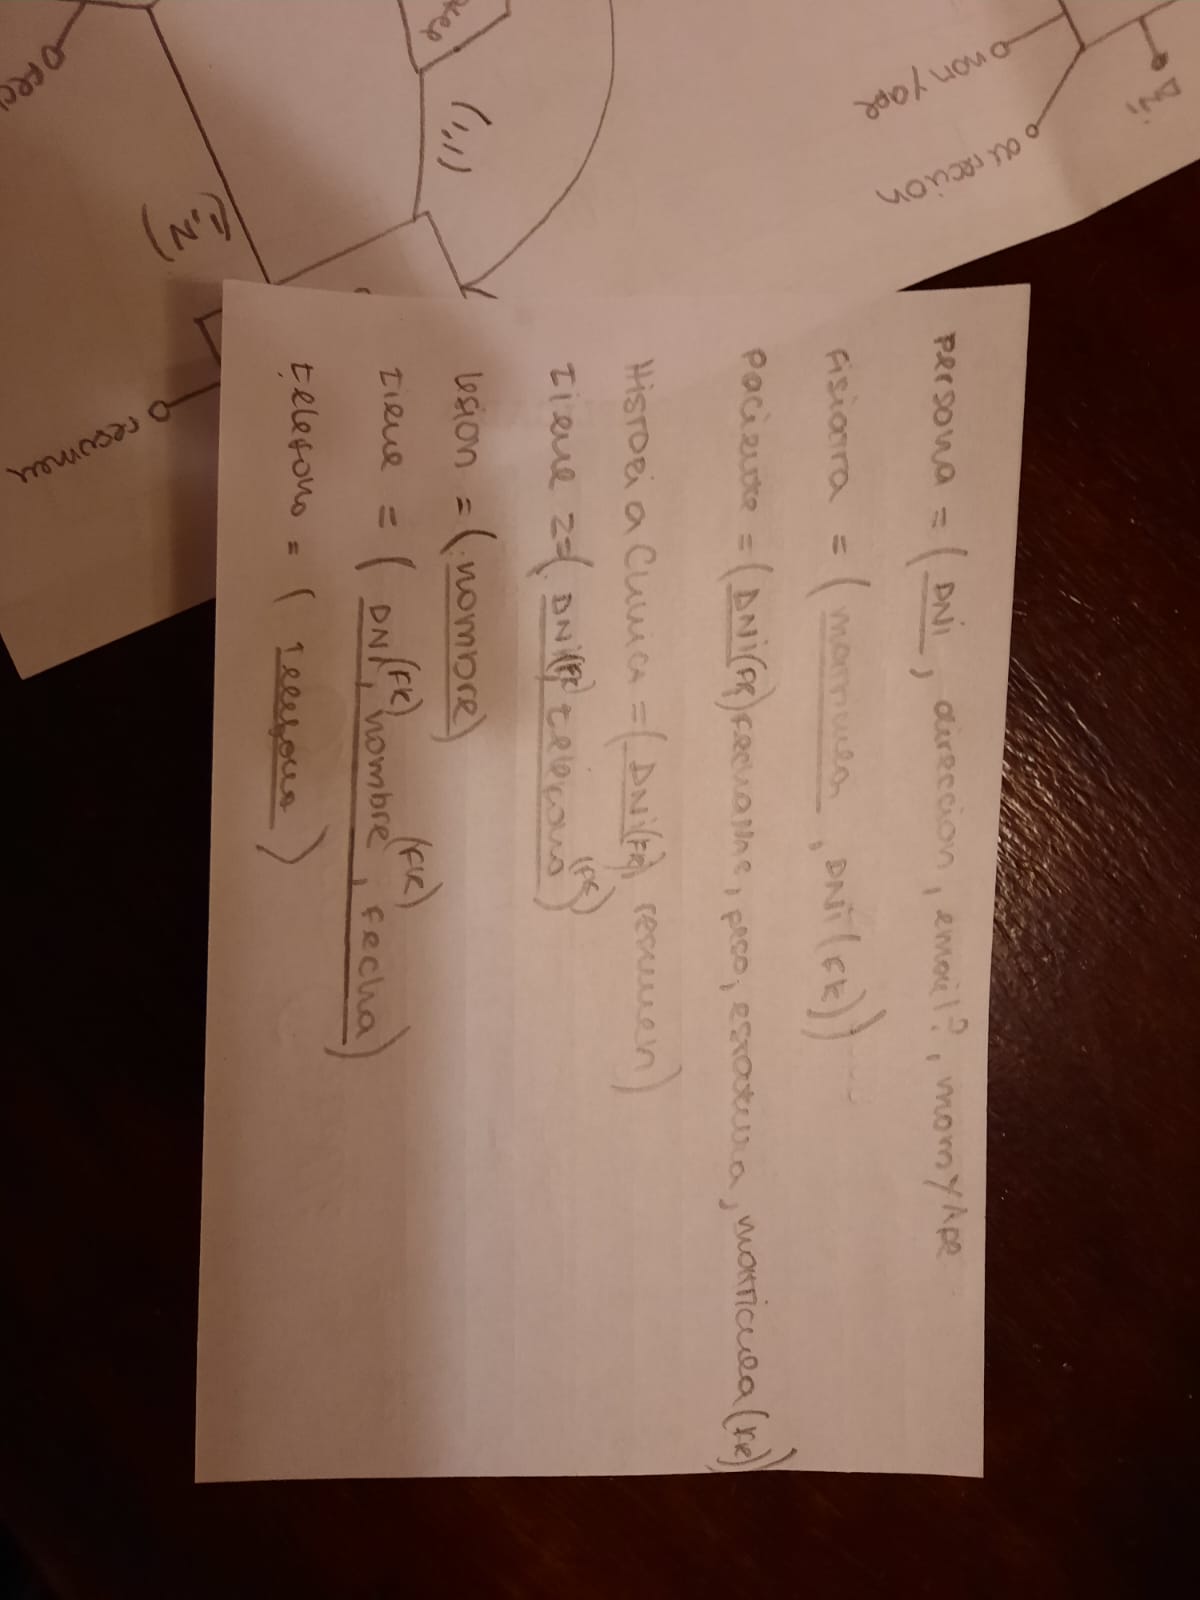 DNi
direccion
nomyape
persona = ( DNi , direccion, email?, nomyApe
fisiatra = ( matricula , DNi (FK))
paciente = ( DNi(FK) fechaNac, peso, estatura, matricula (FK))
Historia Clinica = ( DNi(FK), resumen )
tiene 2=( DNi(FK) telefono (FK))
lesion = ( nombre )
tiene = ( DNI (FK), nombre (FK), fecha )
telefono = ( telefono )
(1,1)
(1,N)
resumen